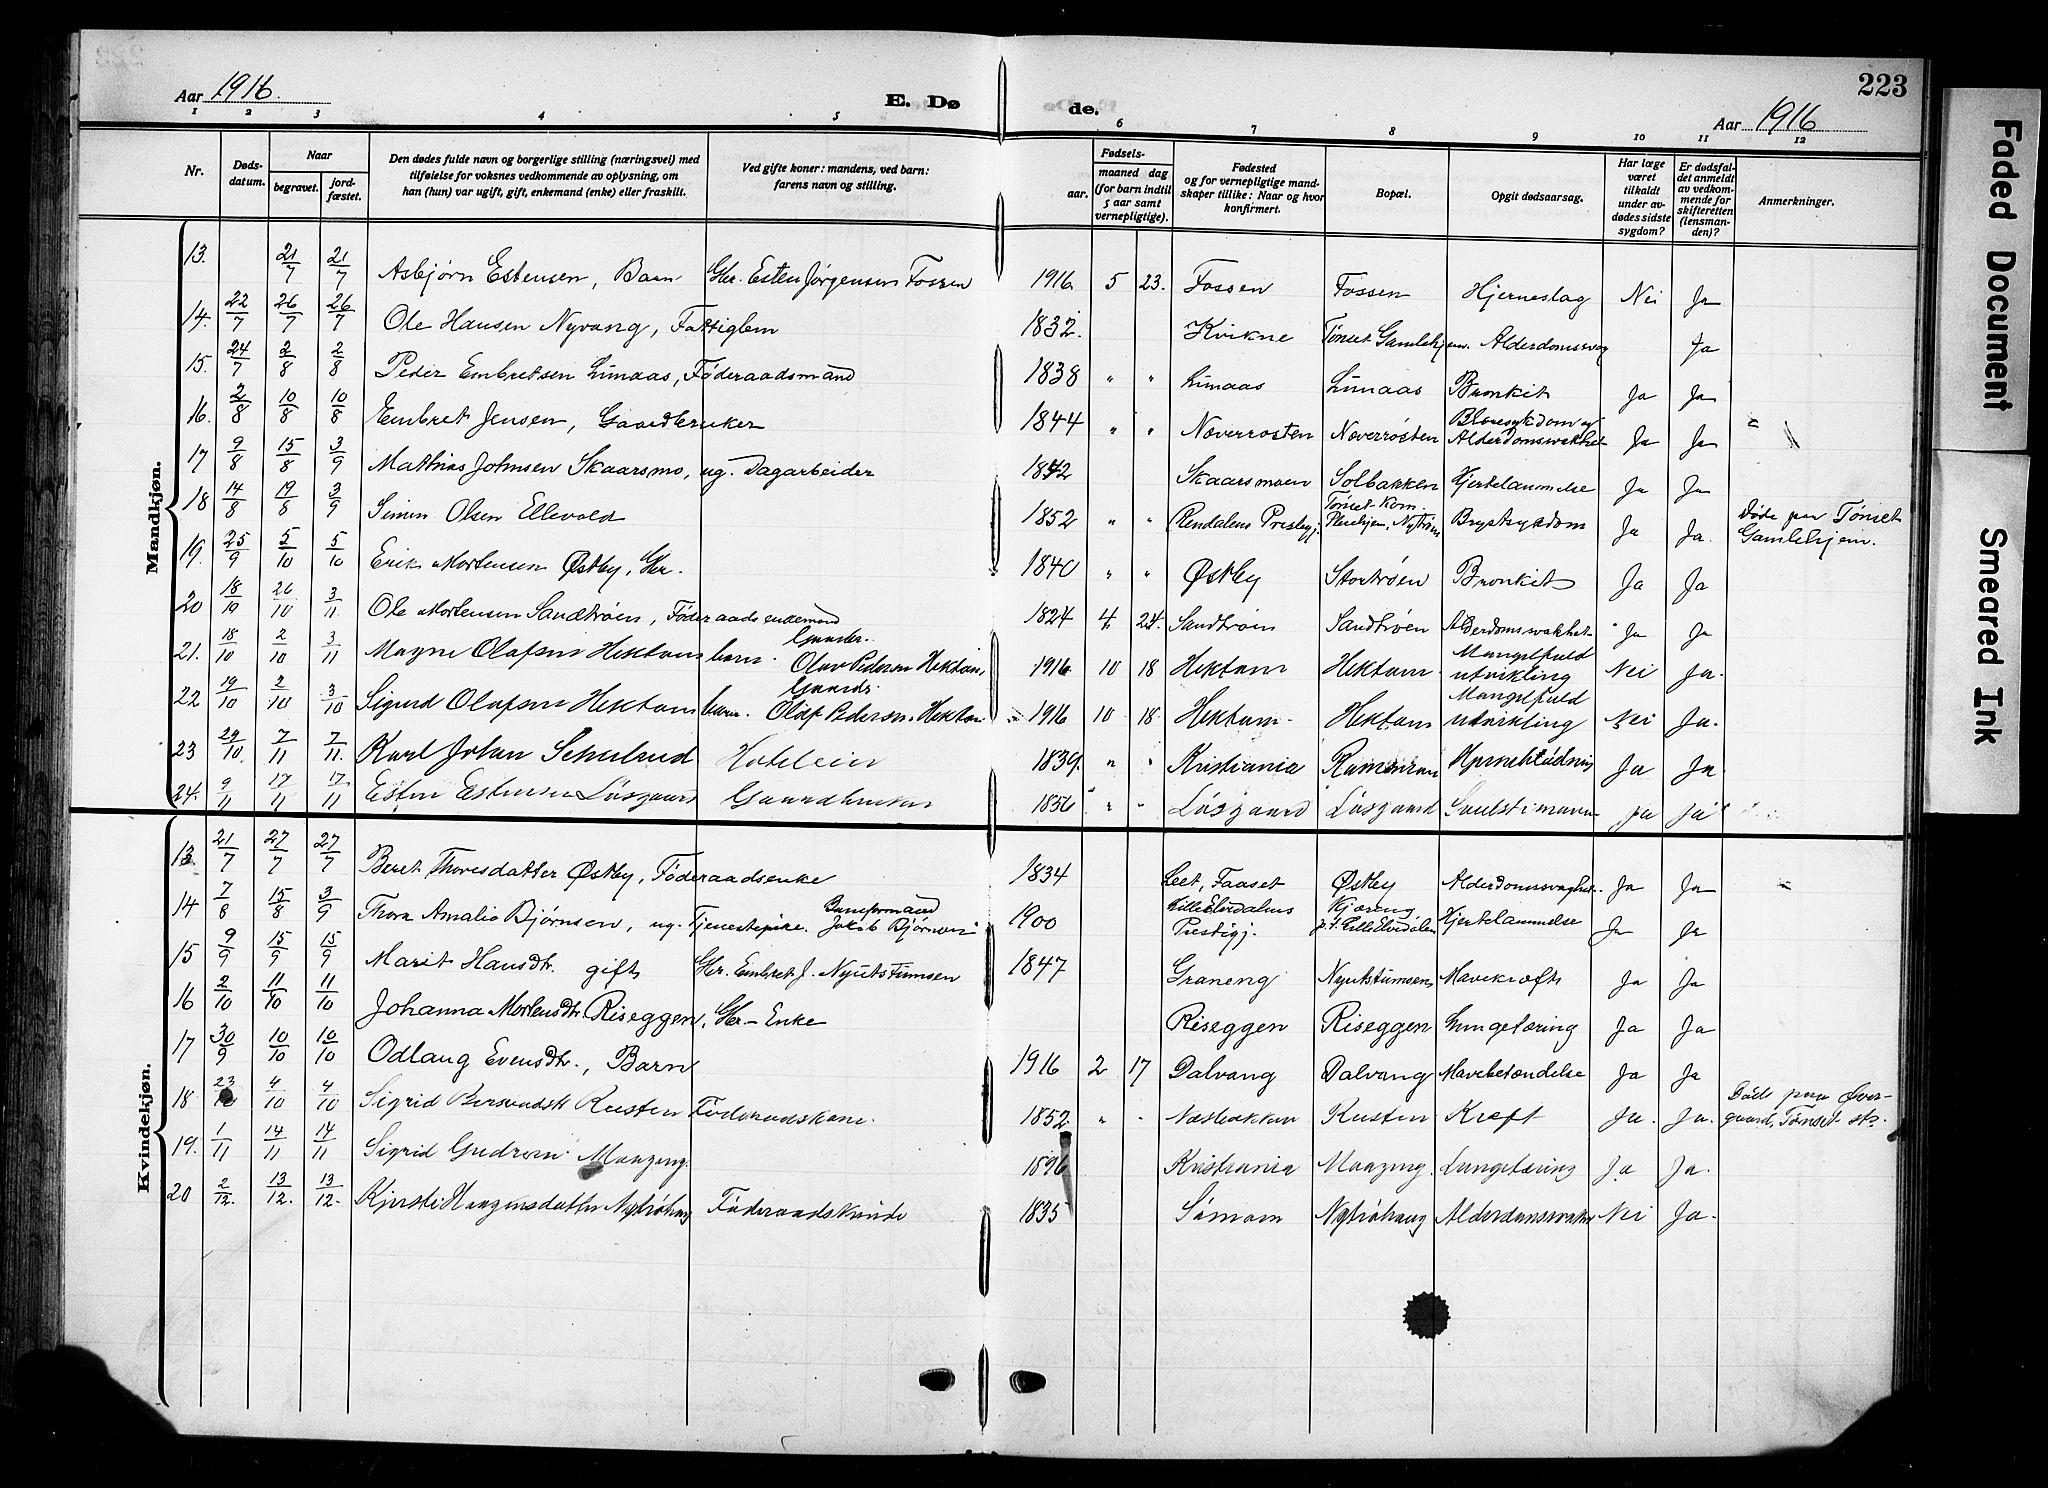 223
Aar 1916.
E. Dø
de.
Aar 1916
1 2 3 4 5 6 7 8 9 10 11 12
Nr.
Døds-
datum.
Naar
begravet.
jord-
fæstet.
Den dødes fulde navn og borgerlige stilling (næringsvei) med
tilføielse for voksnes vedkommende av oplysning, om
han (hun) var ugift, gift, enkemand (enke) eller fraskilt.
Ved gifte koner: mandens, ved barn:
farens navn og stilling.
Fødsels-
aar.
maaned dag
(for barn indtil
5 aar samt
vernepligtige).
Fødested
og for vernepligtige mand-
skaper tillike: Naar og hvor
konfirmert.
Bopæl.
Opgit dødsaarsag.
Har læge
været
tilkaldt
under av-
dødes sidste
sygdom?
Er dødsfal-
det anmeldt
av vedkom-
mende for
skifteretten
(lensman-
den)?
Anmerkninger.
Mandkjøn.
13. 21/7 21/7 Asbjørn Estensen, Barn Gbr. Esten Jørgensen Fossen 1916 5 23. Fossen Fossen Hjerneslag Nei Ja
14. 22/7 26/7 26/7 Ole Hansen Nyvang, Fattiglem 1832. Kvikne Tønset Gamlehjem. Alderdomssvag Ja
15. 24/7 2/8 2/8 Peder Embretsen Lunaas, Føderaadsmand 1838 " " Lunaas Lunaas Bronkit Ja Ja
16. 2/8 10/8 10/8 Embret Jensen, Gaardbruker 1844 " " Nøverrosten Nøverrosten Blæresykdom og Alderdomsvakhet Ja Ja
17 9/8 15/8 3/9 Mathias Johnsen Skaarsmo, ug. Dagarbeider Skaarsmoen Solbakken Hjertelammelse Ja Ja
18 14/8 19/8 3/9 Simen Olsen Ellevold 1852 " " Rendalens Prestgj. Tønset Kom. Pleiehjem, Nytrøen Brystsykdom Ja Ja. Døde paa Tønset
Gamlehjem.
19. 25/9 5/10 5/10 Erik Mortensen Østby, Gbr. 1840 " " Østby Stortrøen Bronkit Ja Ja
20 18/10 26/10 3/11. Ole Mortensen Sandtrøen, Føderaadsenkemand 1824 4 24. Sandtrøen Sandtrøen Alderdomsvakhet Ja Ja
21. 18/10 2/10 3/11 Magne Olafsen Hektoen barn. Gaardbr. Olav Pedersen Hektoen, 1916 10 18 Hektoen Hektoen Mangelfuld utvikling Nei Ja.
22 19/10 2/10 3/10 Sigurd Olafsen Hektoen barn. Gaardb. Olaf Pedersen Hektoen 1916 10 18. Hektoen Hektoen Mangelfuld utvikling Nei Ja.
23 29/10. 7/11 7/11. Karl Johan Schulrud Hoteleier 1839. " " Kristiania Hjerneblødning Ja Ja.
24. 9/11 17/11 17/11 Esten Estensen Løsgaard Gaardbruker 1856 " " Løsgaard Løsgaard Ja Ja
Kvindekjøn.
13. 21/7 27/7 27/7 Beret Thoresdatter Østby, Føderaadsenke 1834 Leet, Faaset Østby Alderdomssvaghet. Ja Ja
14 7/8 15/8 3/9 Thora Amalie Bjørnsen, ug. Tjenestepike. Baneformand Jakob Bjørnsen 1900 Lille Elvdalens Prestegj. Kjæreng p.t. Lille Elvedalen Hjertelammelse Ja Ja
15 9/9 15/9 15/9 Marit Hansdtr. gift Gbr. Embret J. Nyutstumoen 1847 Graneng Nyutstumoen Mavekræft Ja Ja
16 2/10 11/10 11/10 Johanna Mortensdtr. Riseggen, Gbr-Enke Riseggen Riseggen Lungetæring Ja Ja
17 30/9 10/10 10/10 Odlaug Evensdtr., Barn 1916 2 17 Dalvang Dalvang Mavebetændelse Ja Ja
18 23/ 4/10 4/10 Sigrid Bersvendsdt Rusten Føderaadskone. 1852. " " Næsbakken Rusten Kreft Ja. Ja. Døde paa Øver-
gaard, Tønset st.
19. 1/11 14/11 14/11 Sigrid Gudrun Moazeng. 1896 Kristiania Moazeng. Lungetæring Ja Ja.
20 2/12. 13/12. 13/12. Kjersti Haagensdatter Nytrøhaug Føderaadskvinde 1835 Sømoen Nytrøhaug Alderdomsvakhet Nei Ja.
Faded Document
Smeared Ink